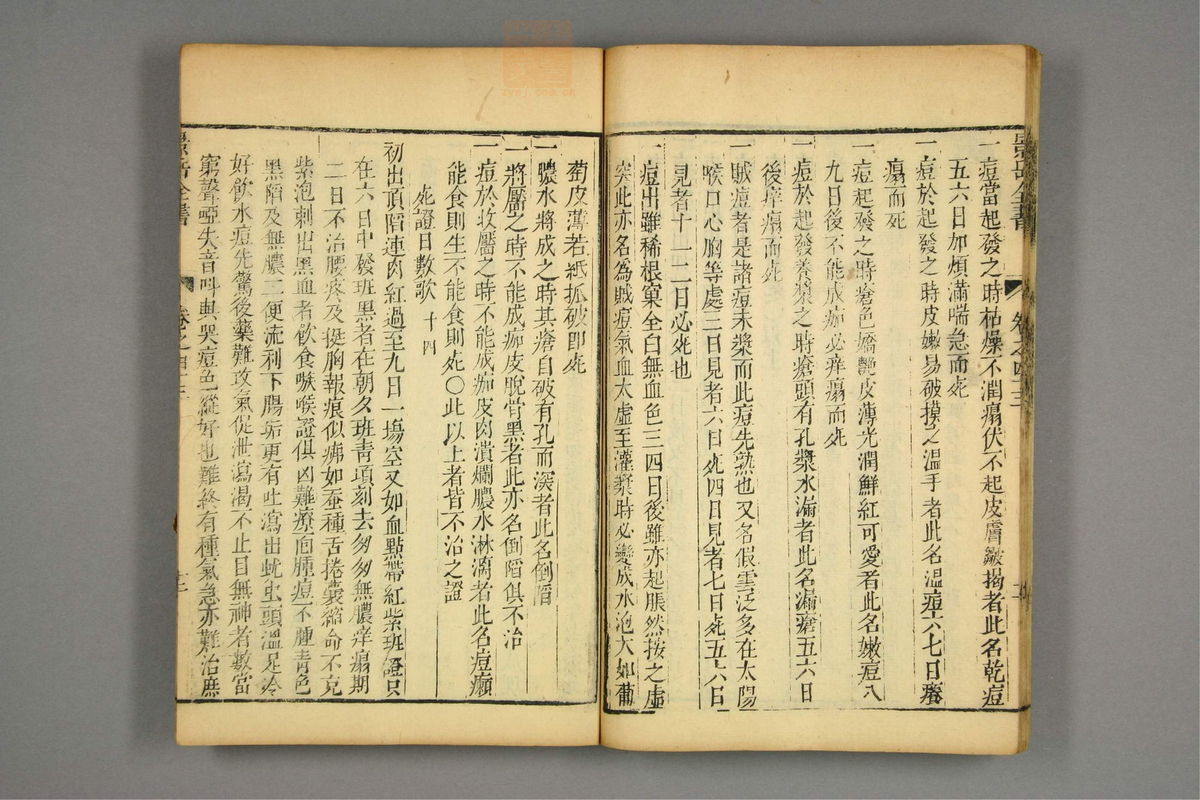 景岳全書
卷之四十三
一痘當起發之時枯燥不潤塌伏不起皮膚皺揭者此名乾痘
五六日加煩滿喘急而死
一痘於起發之時皮嫩易破摸之溫手者此名溫痘六七日癢
塌而死
一痘起發之時瘡色嬌艷皮薄光潤鮮紅可愛者此名嫩痘八
九日後不能成痂必痒塌而死
一痘於起發養漿之時瘡頭有孔漿水漏者此名漏瘡五六日
後痒塌而死
一賊痘者是諸痘未漿而此痘先熟也又名假雲泛多在太陽
喉口心胸等處三日見者六日死四日見者七日死五六日
見者十一二日必死也
一痘出雖稀根窠全白無血色三四日後雖亦起脹然按之虛
突此亦名為賊痘氣血太虛至灌漿時必變成水泡大如葡
萄皮薄若紙抓破即死
一膿水將成之時其瘡自破有孔而深者此名倒陷
一將靨之時不能成痂皮脫骨黑者此亦名倒陷俱不治
一痘於收靨之時不能成痂皮肉潰爛膿水淋漓者此名痘癩
能食則生不能食則死〇此以上者皆不治之證
死證日數歌 十四
初出頂陷連肉紅過至九日一塲空又如血點帶紅紫班證只
在六日中發班黑者在朝夕班青頃刻去匆匆無膿痒塌期
二日不治腰疼及挺胸報痕似疿如蚕種舌捲囊縮命不克
紫泡刺出黑血者飲食嗾喉證俱凶難療面腫痘不腫青色
黑陷及無膿二便流利下腸垢更有吐瀉出蚘虫頭溫足冷
好飲水痘先驚後藥難攻氣促泄瀉渴不止目無神者數當
窮聲啞失音呌與哭痘色縱好也難終有種氣急亦難治庶
景岳全書
卷之四十三